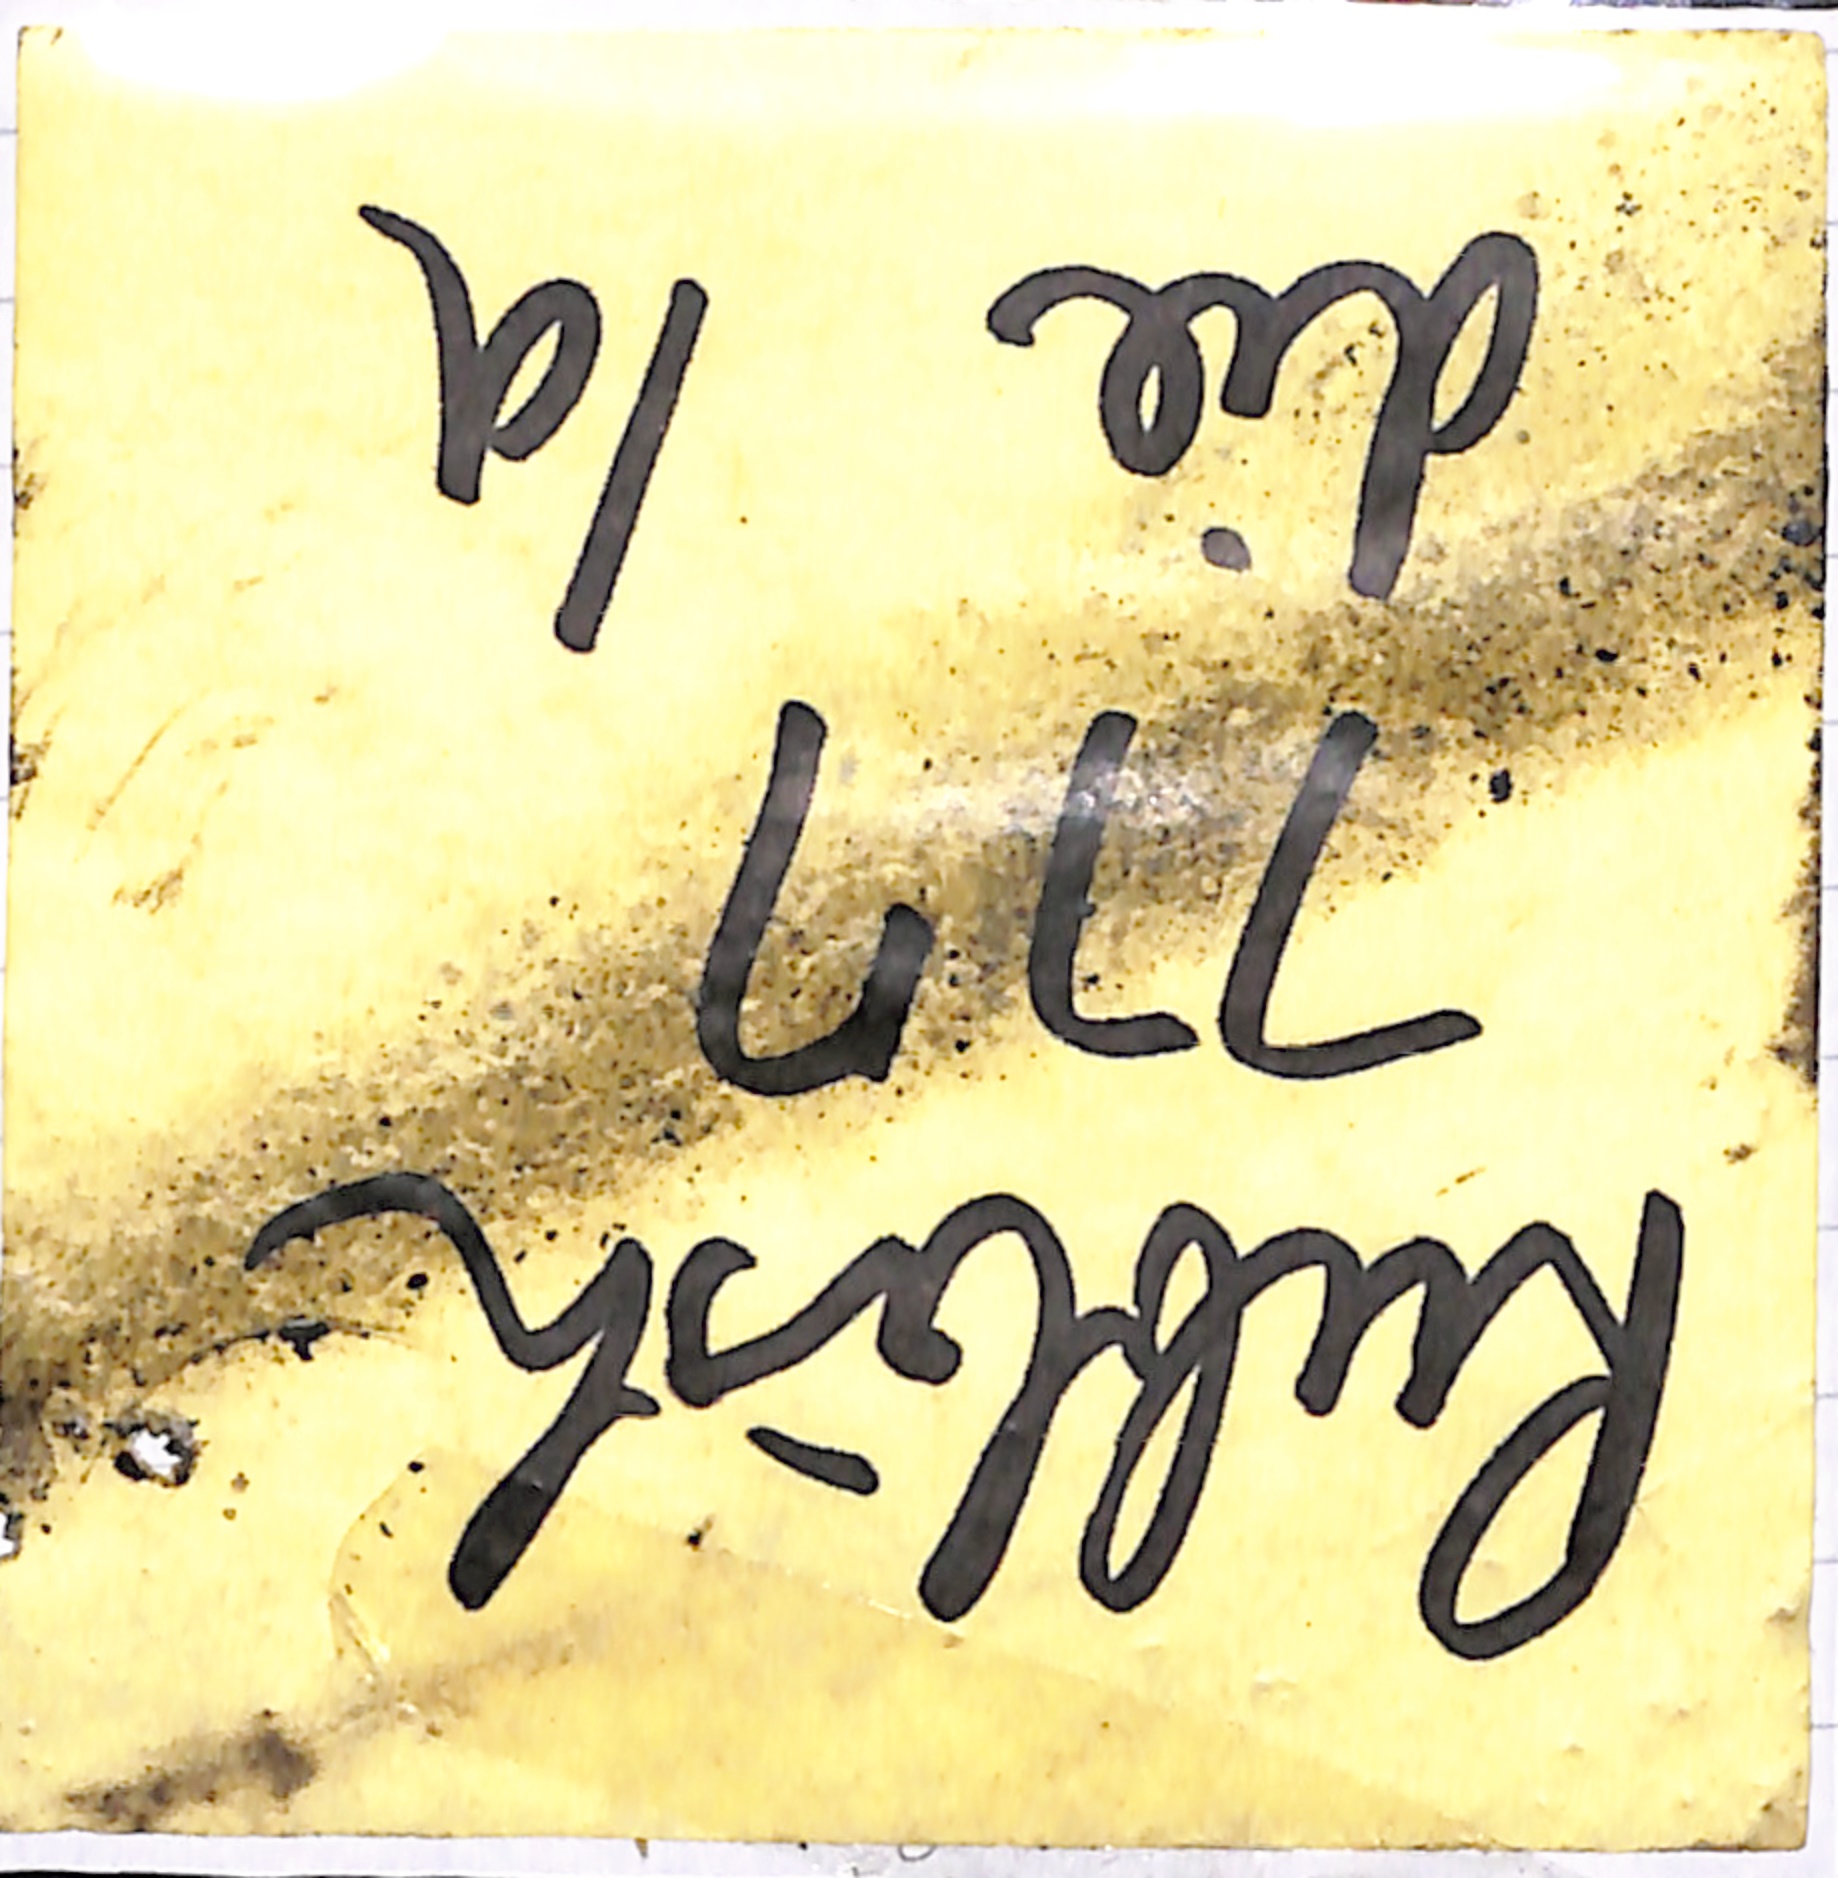 Rubbish
777
die la